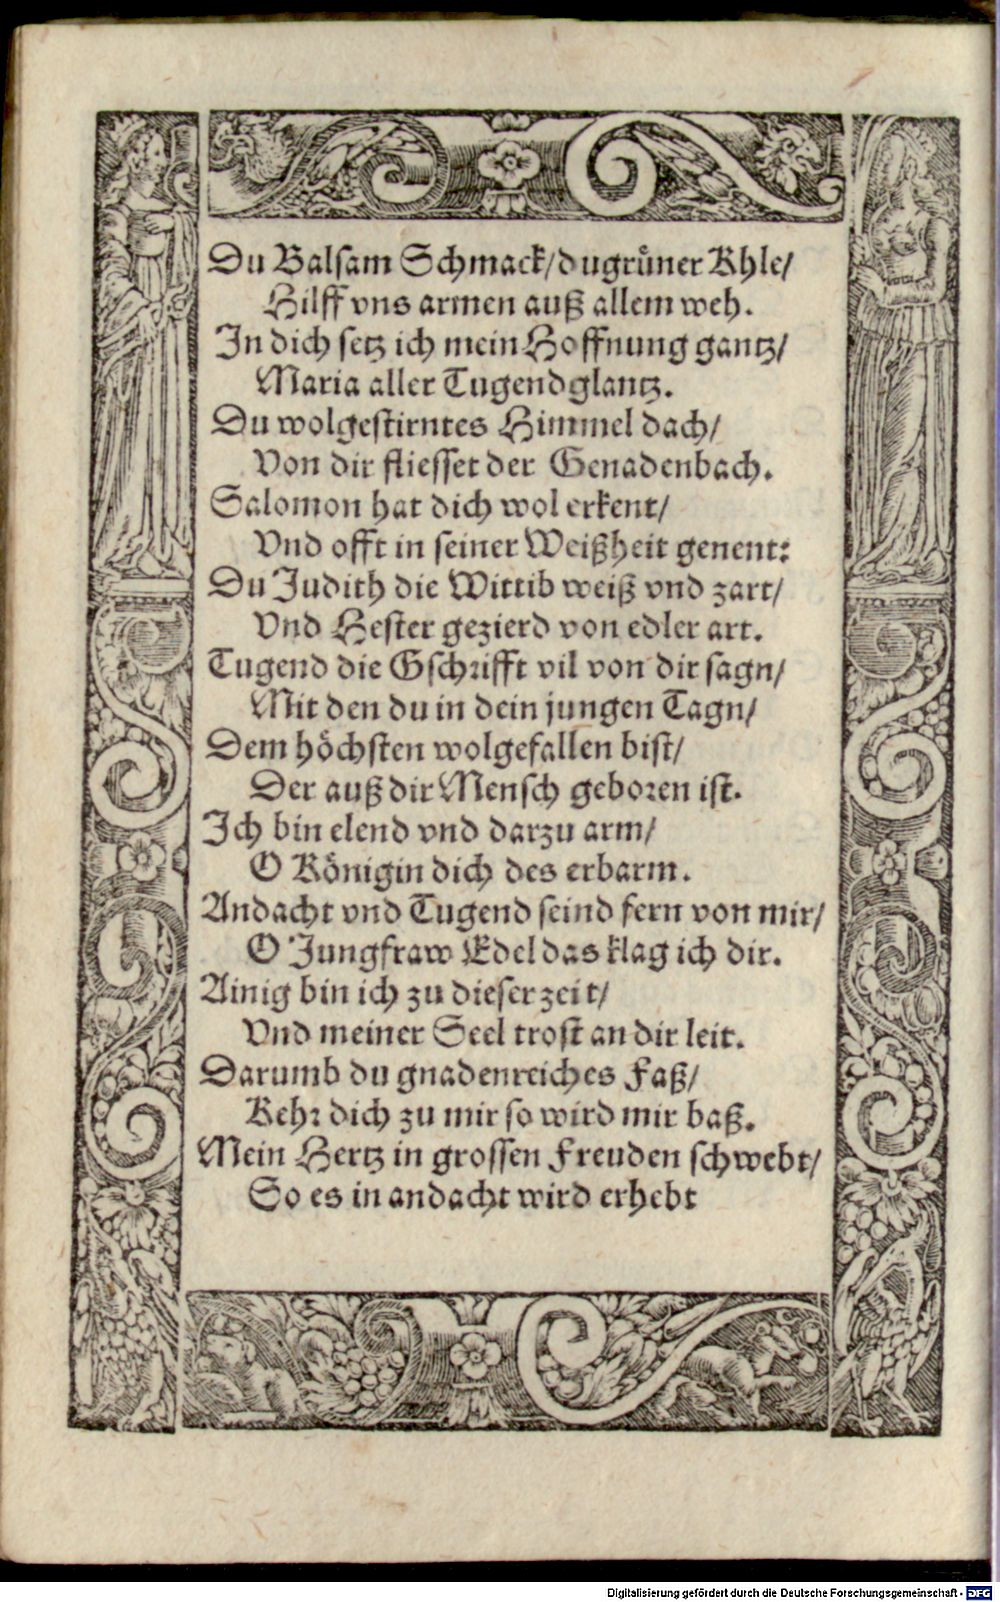 Du Balsam Schmack/ du grüner Khle/
Hilff vns armen auß allem weh.
In dich setz ich mein Hoffnung gantz/
Maria aller Tugend glantz.
Du wolgestirntes Himmel dach/
Von dir fliesset der Genadenbach.
Salomon hat dich wol erkent/
Vnd offt in seiner Weißheit genent:
Du Judith die Wittib weiß vnd zart/
Vnd Hester gezierd von edler art.
Tugend die Gschrifft vil von dir sagn/
Mit den du in dein jungen Tagn/
Dem höchsten wolgefallen bist/
Der auß dir Mensch geboren ist.
Ich bin elend vnd darzu arm/
O Königin dich des erbarm.
Andacht vnd Tugend seind fern von mir/
O Jungfraw Edel das klag ich dir.
Ainig bin ich zu dieser zeit/
Vnd meiner Seel trost an dir leit.
Darumb du gnadenreiches Faß/
Kehr dich zu mir so wird mir baß.
Mein Hertz in grossen Freuden schwebt/
So es in andacht wird erhebt
Digitalisierung gefördert durch die Deutsche Forschungsgemeinschaft - DFG